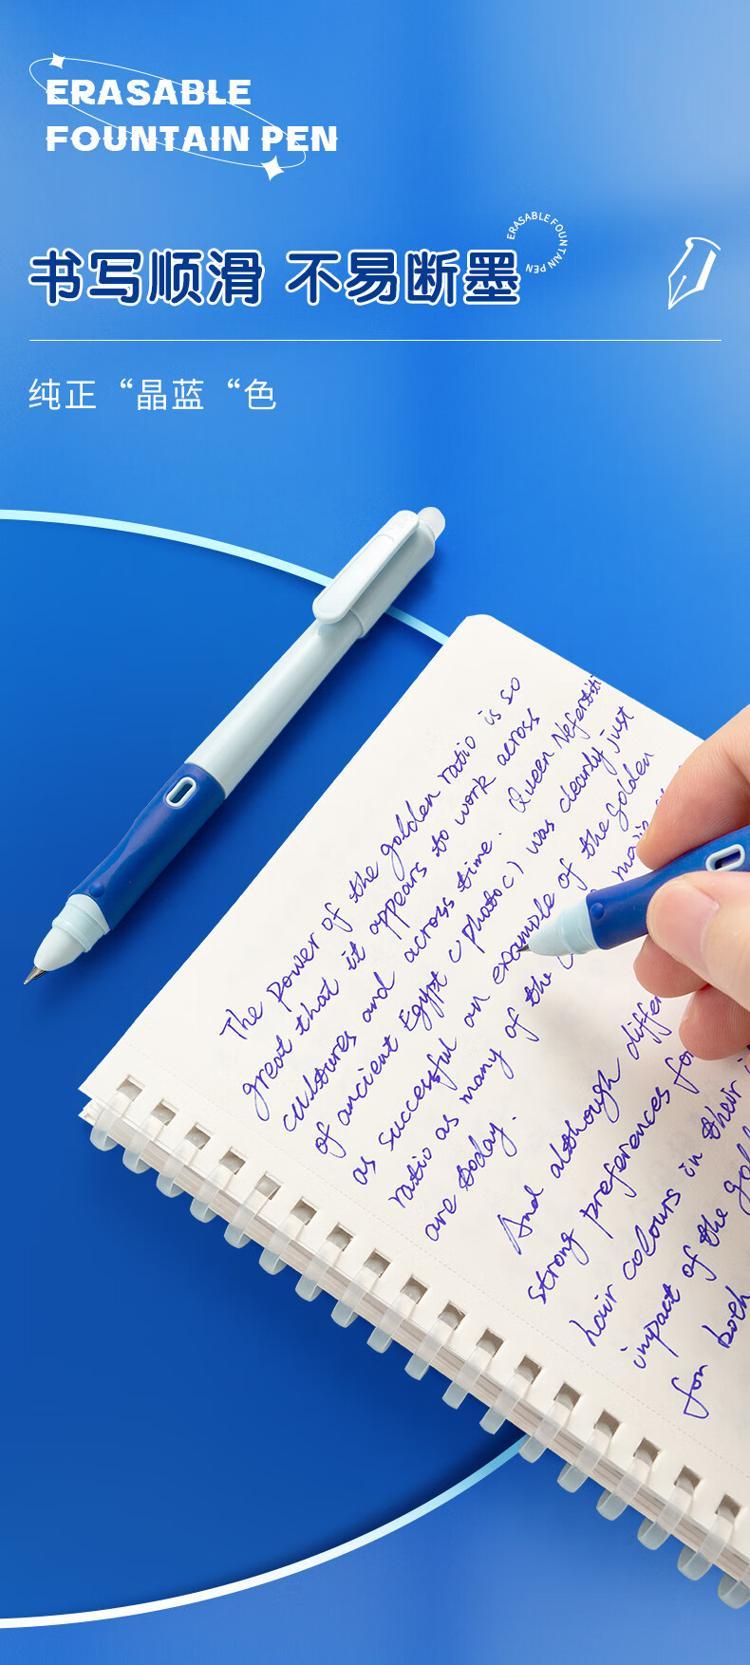 ERASABLE
FOUNTAIN PEN
书写顺滑 不易断墨
ERASABLE FOUNTAIN PEN
纯正“晶蓝“色
The power of the golden ratio is so
great that it appears to work across
cultures and across time. Queen Nefertiti
of ancient Egypt (photo c) was clearly just
as successful an example of the golden
ratio as many of the
are today.
And although
strong preferences
hair colours in their
impact of the
for both